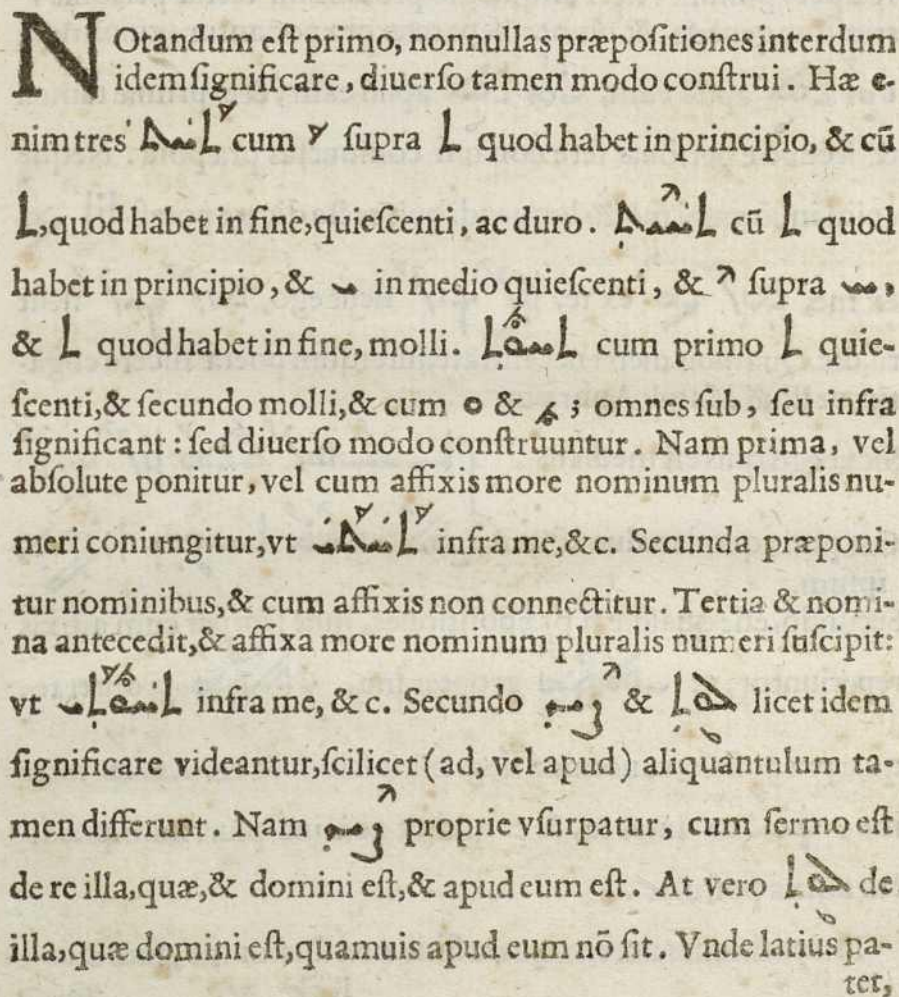 NOtandum eſt primo, nonnullas præpoſitiones interdum
idem ſignificare, diuerſo tamen modo conſtrui. Hæ e-
nim tres ܬܰܚܬ cum ܰ ſupra ܬ quod habet in principio, & cũ
ܬ, quod habet in fine, quieſcenti, ac duro. ܬܚܶܝܬ cũ ܬ quod
habet in principio, & ܝ in medio quieſcenti, & ܶ ſupra ܚ,
& ܬ quod habet in fine, molli. ܬܚܽܘܬ cum primo ܬ quie-
ſcenti, & ſecundo molli, & cum ܘ & ܽ ; omnes ſub, ſeu infra
ſignificant: ſed diuerſo modo conſtruuntur. Nam prima, vel
abſolute ponitur, vel cum affixis more nominum pluralis nu-
meri coniungitur, vt ܬܰܚܬܰܝ infra me, &c. Secunda præponi-
tur nominibus, & cum affixis non connectitur. Tertia & nomi-
na antecedit, & affixa more nominum pluralis numeri ſuſcipit:
vt ܬܚܽܘܬܰܝ infra me, & c. Secundo ܨܶܝܕ & ܠܘܳܬ licet idem
ſignificare videantur, ſcilicet (ad, vel apud) aliquantulum ta-
men differunt. Nam ܨܶܝܕ proprie vſurpatur, cum ſermo eſt
de re illa, quæ, & domini eſt, & apud eum eſt. At vero ܠܘܳܬ de
illa, quæ domini eſt, quamuis apud eum nõ ſit. Vnde latius pa-
tet,